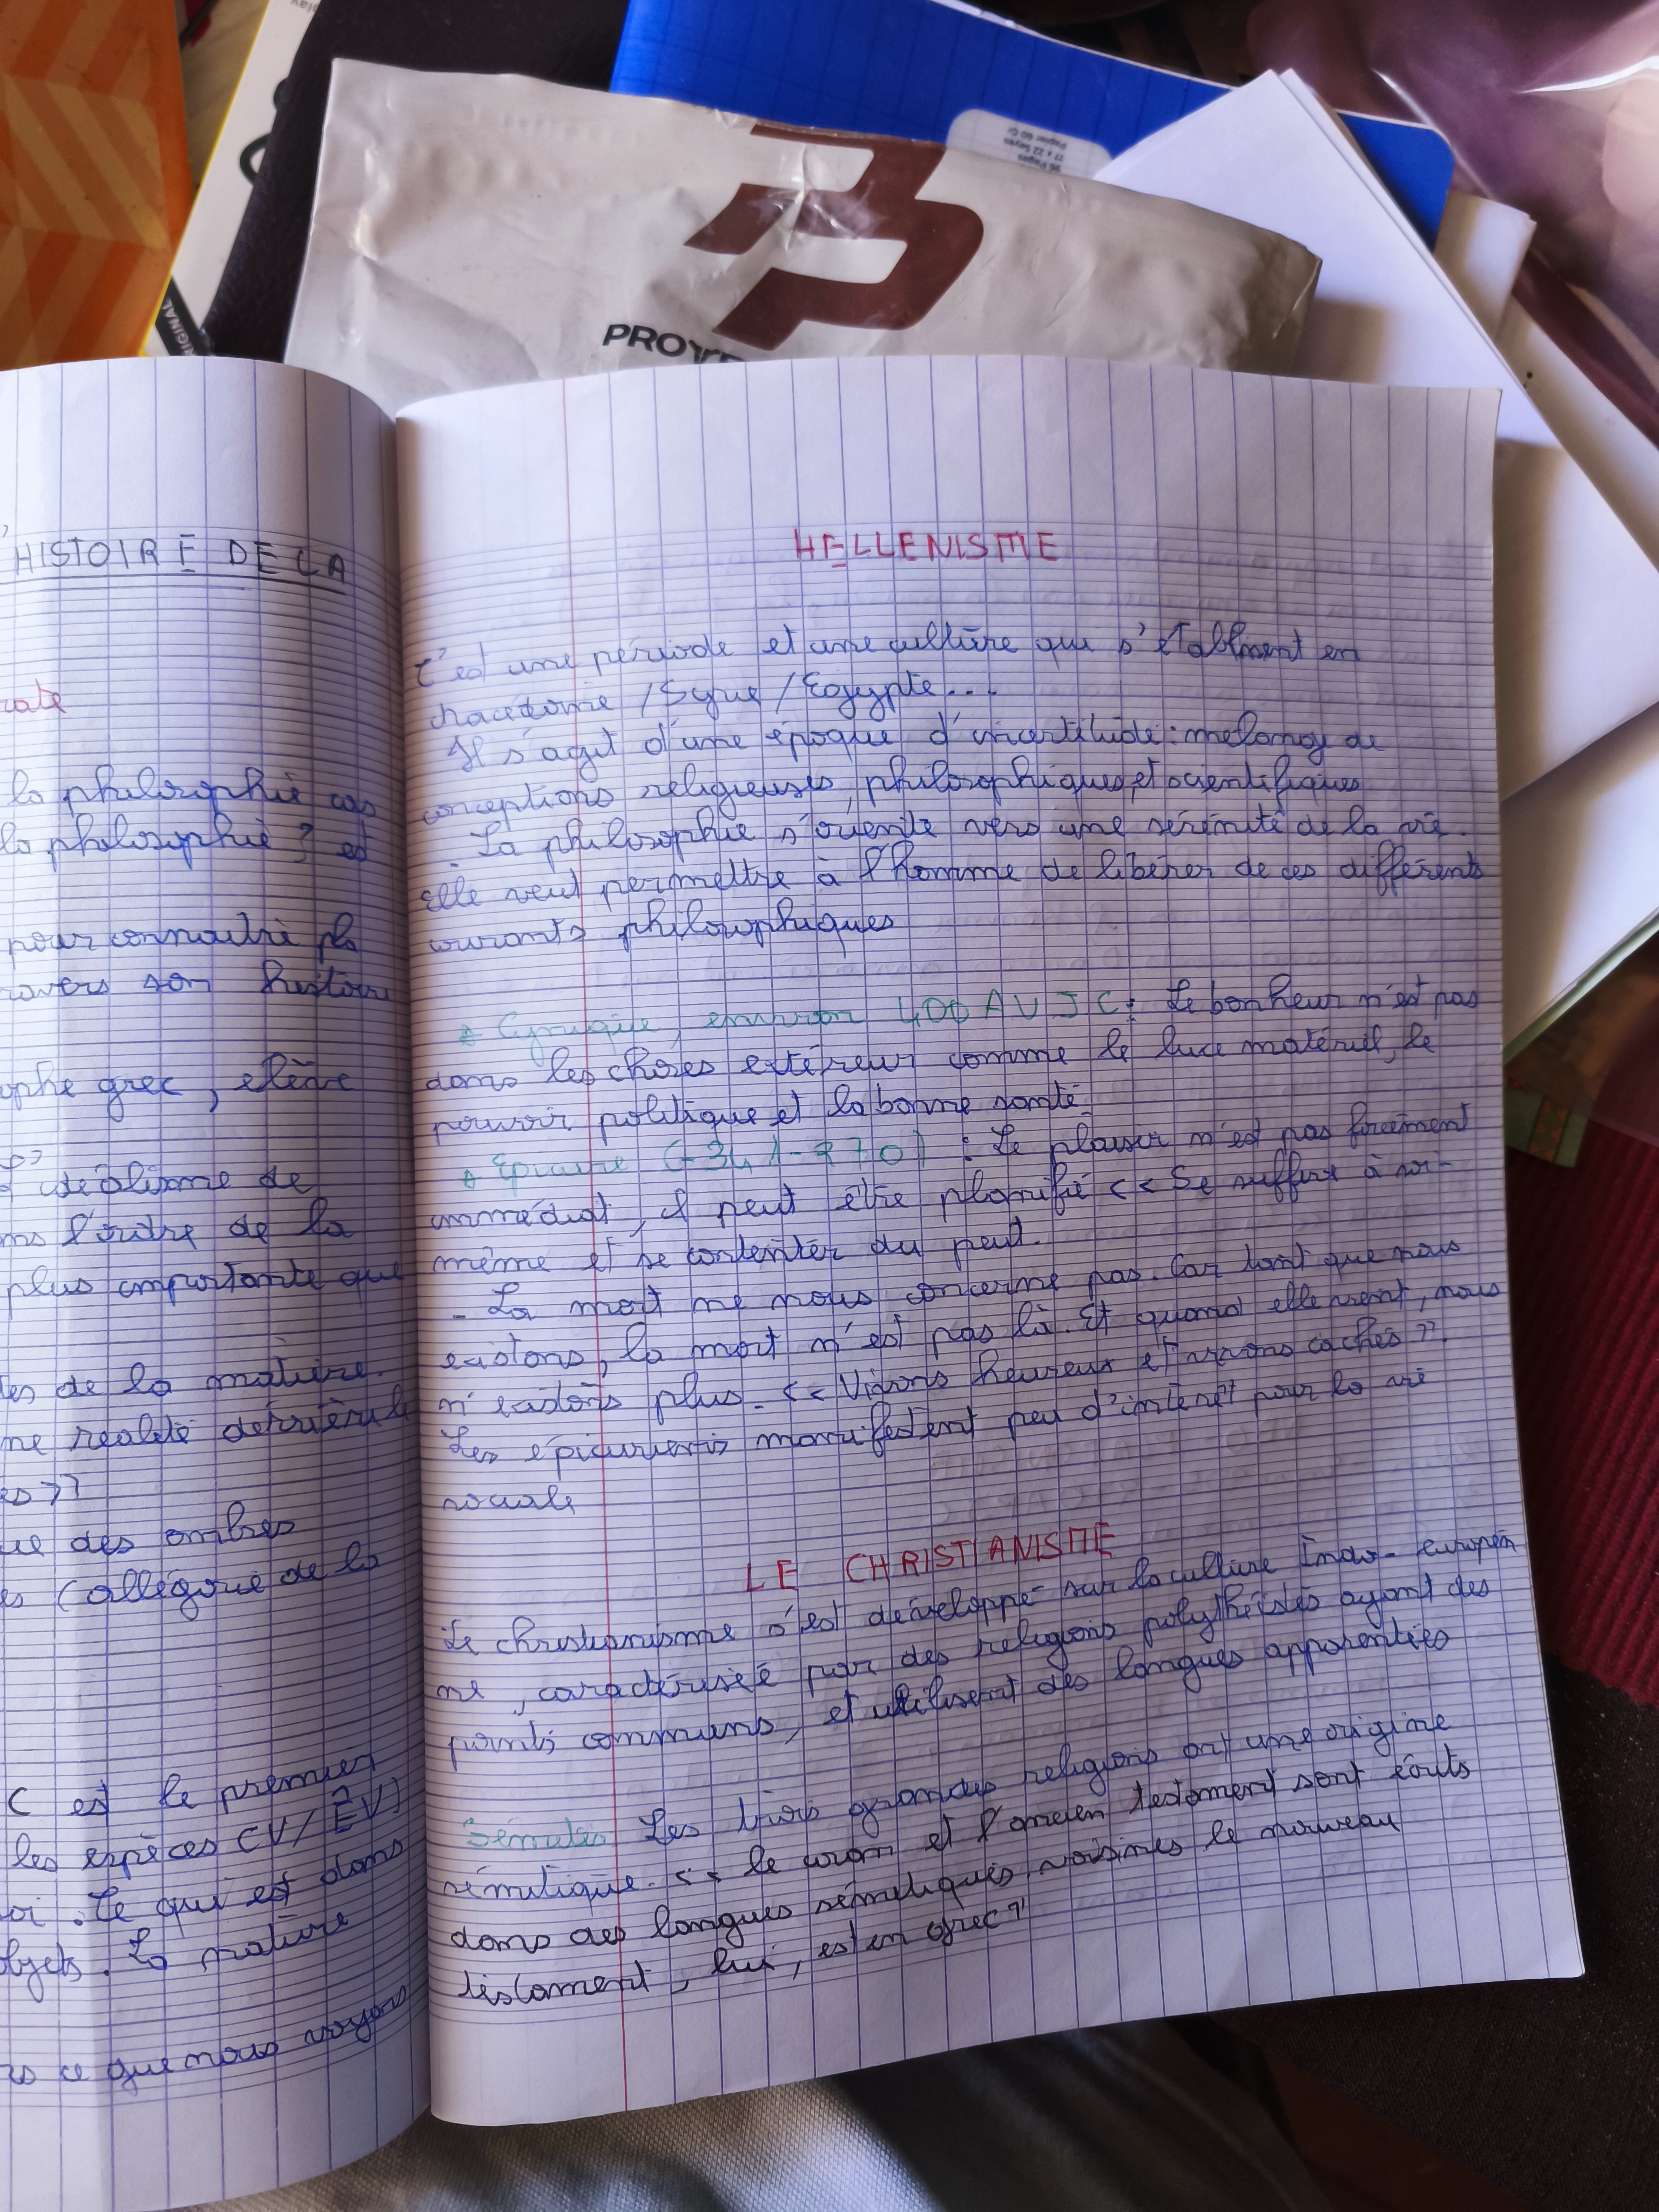 PROVE
RIGINAL
96 Pages
17 x 22 Seyes
Papier 60 Gr
HISTOIRE DE LA
rate
la philosophie
la philosophie ? et
pour connaitre
travers son histoire
ophe grec, elève
idéalisme de
l'ordre de la
plus importante que
de la matière.
ne réalité derrière
es >>
que des ombres
(allégorie de la
C est le premier
les espèces (V/EV)
oi. Ce qui est dans
objets. La matière
ce que nous voyons
HELLENISME
C'est une période et une culture qui s'établissent en
Macédonie / Syrie / Egypte...
Il s'agit d'une époque d'incertitude : mélange de
conceptions religieuses, philosophiques et scientifiques
- La philosophie s'oriente vers une sérénité de la vie.
Elle veut permettre à l'homme de libérer de ces différents
courants philosophiques
Cynique, environ 400 AV J C : Le bonheur n'est pas
dans les choses extérieur comme le luxe matériel, le
pouvoir politique et la bonne santé.
Epicure (-341-270) : Le plaisir n'est pas forcément
immédiat, il peut être planifié << Se suffire à soi-
même et se contenter du peut.
- La mort ne nous concerne pas. Car tant que nous
existons, la mort n'est pas là. Et quand elle vient, nous
n'existons plus. << Vivons heureux et vivons cachés >>.
Les épicuriens manifestent peu d'intérêt pour la vie
sociale
LE CHRISTIANISME
Le christianisme s'est développé sur la culture Indo-européen
ne, caractérisée par des religions polythéistes ayant des
points communs, et utilisent des langues apparentées
Sémites Les trois grandes religions ont une origine
sémitique. << le coran et l'ancien testament sont écrits
dans des langues sémitiques voisines le nouveau
testament, lui, est en grec >>